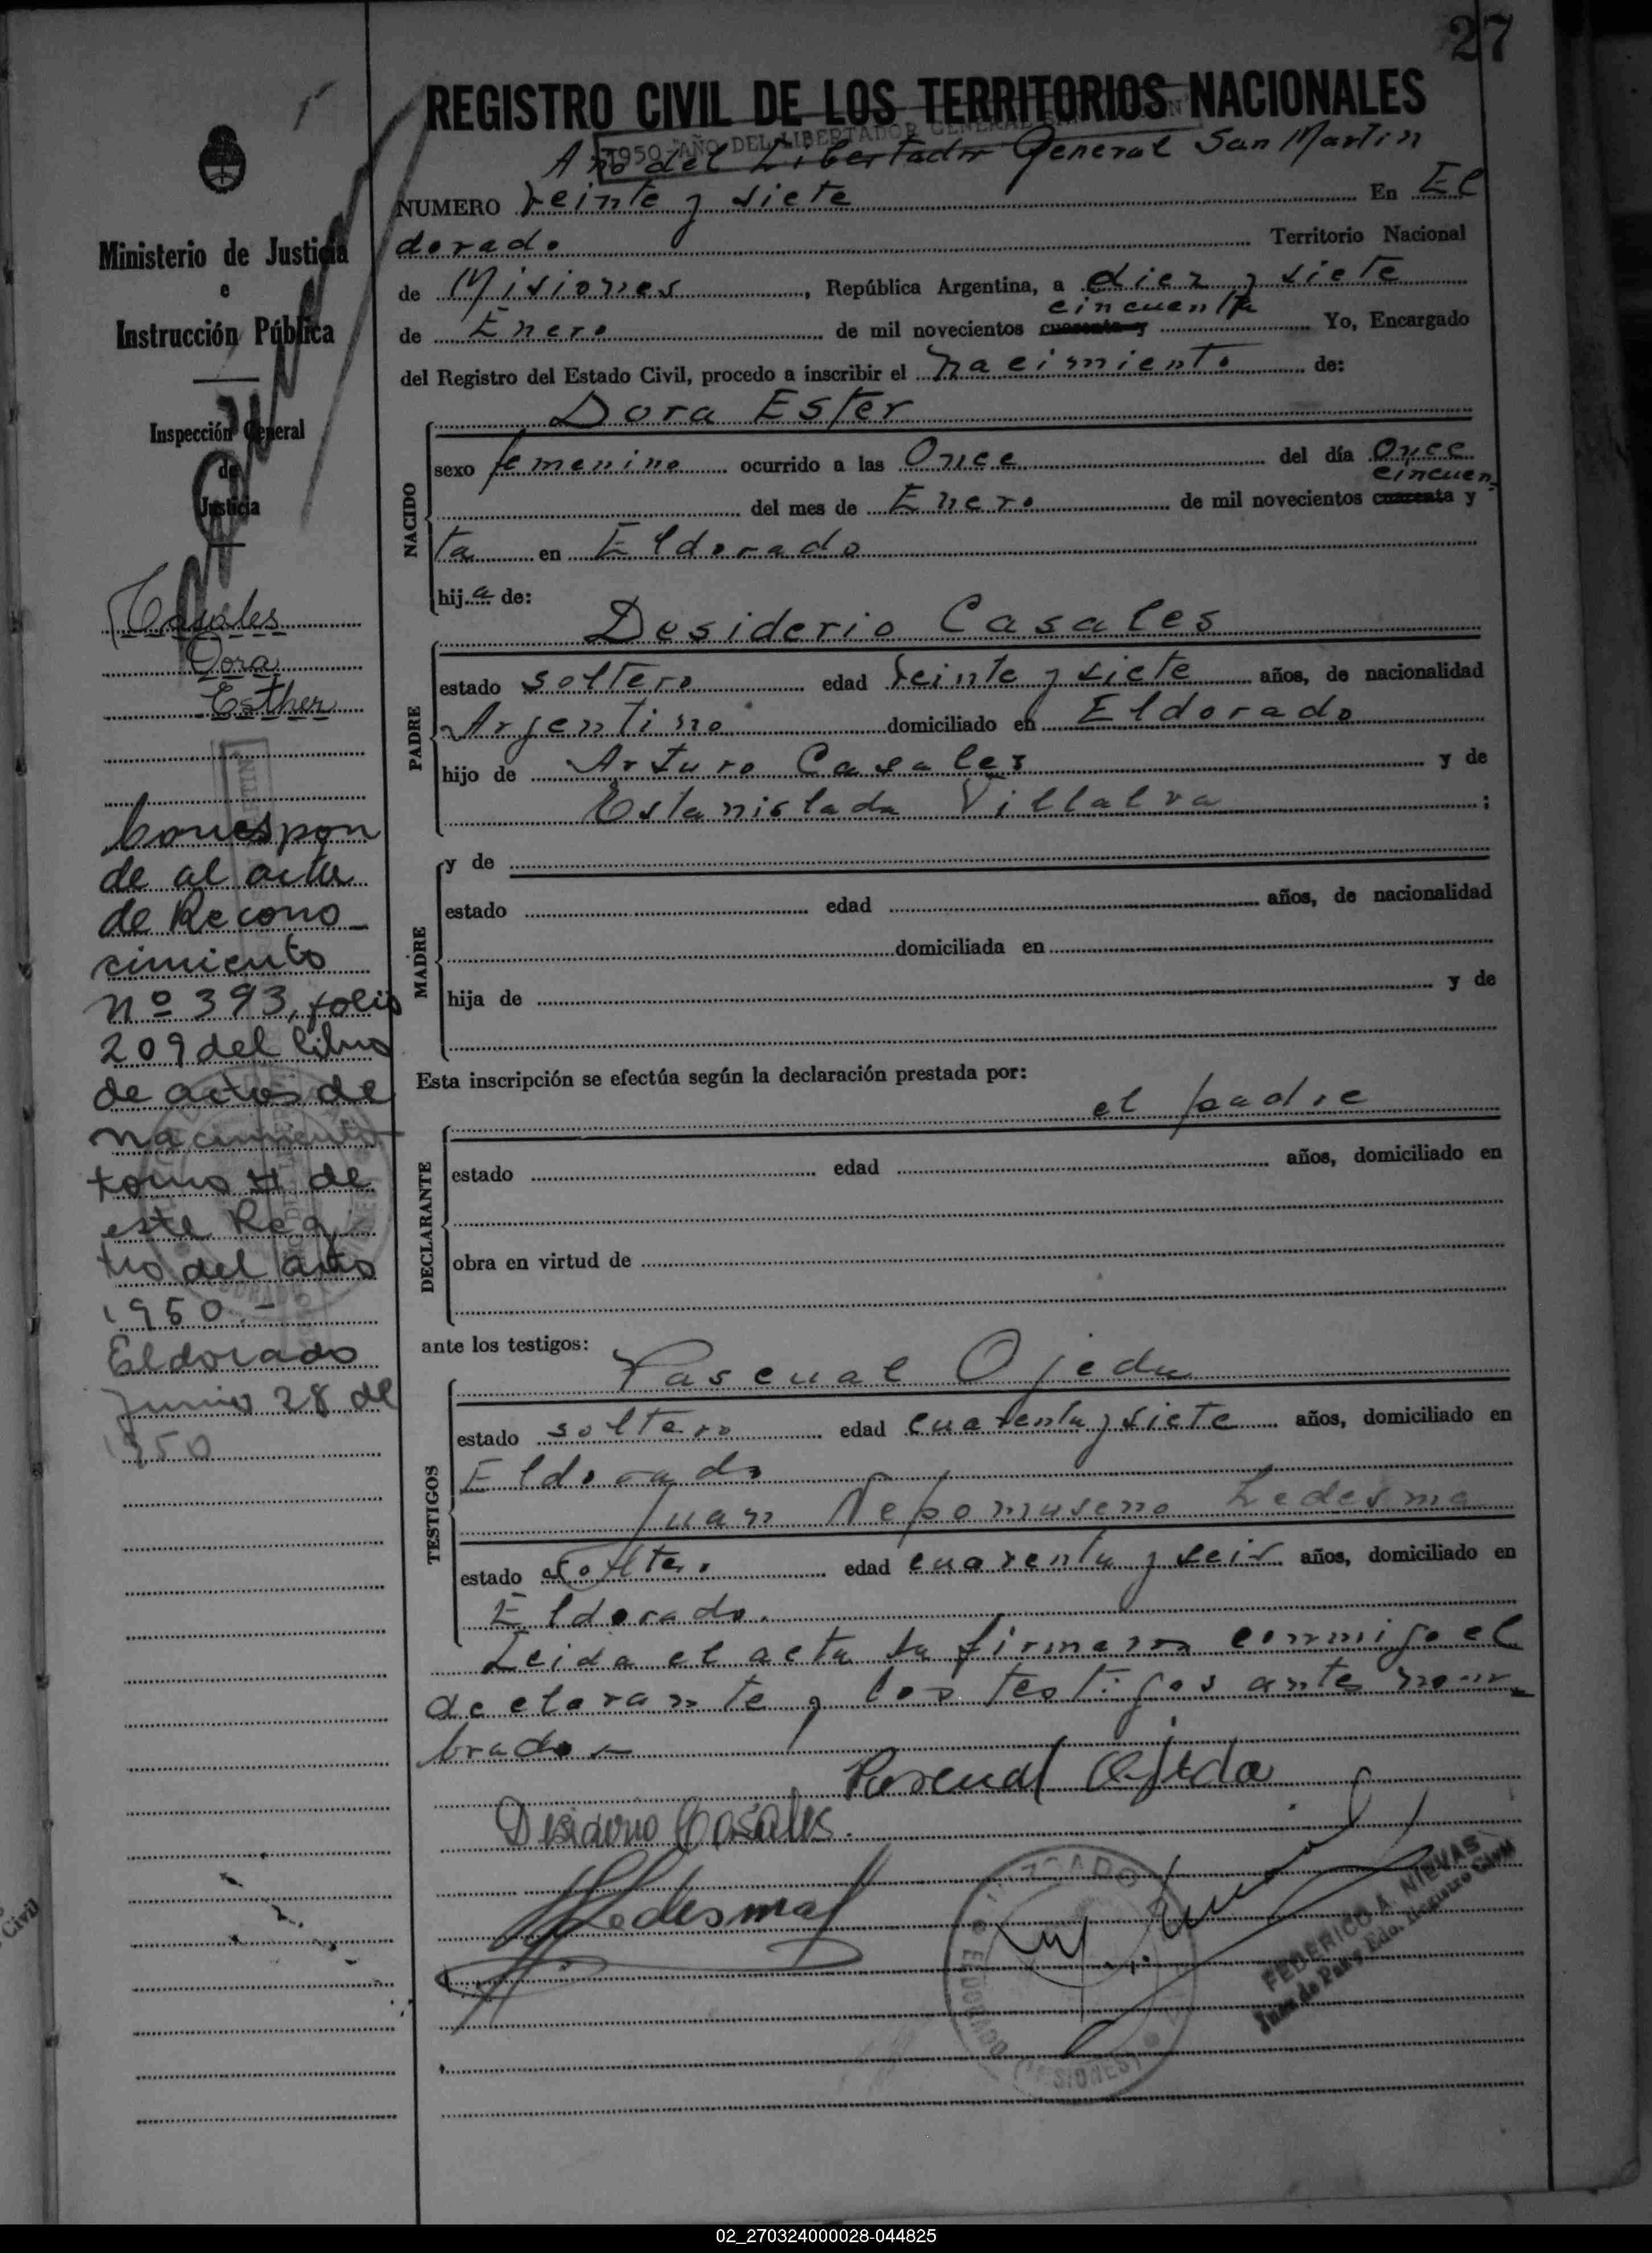 27
REGISTRO CIVIL DE LOS TERRITORIOS NACIONALES
1950-AÑO DEL LIBERTADOR GENERAL SAN MARTIN
Año del Libertador General San Martin
NUMERO Veinte y siete En El
dorado Territorio Nacional
de Misiones, República Argentina, a diez y siete
cincuenta
de Enero de mil novecientos cuarenta y Yo, Encargado
del Registro del Estado Civil, procedo a inscribir el nacimiento de:
NACIDO
Dora Ester
sexo femenino ocurrido a las Once del día Once
cincuen
del mes de Enero de mil novecientos cuarenta y
ta en Eldorado
hija de:
PADRE
Desiderio Casales
estado soltero edad Veinte y siete años, de nacionalidad
Argentino domiciliado en Eldorado
hijo de Arturo Casales y de
Estanislada Villalva ;
MADRE
y de
estado edad años, de nacionalidad
domiciliada en
hija de y de
Esta inscripción se efectúa según la declaración prestada por:
DECLARANTE
el padre
estado edad años, domiciliado en
obra en virtud de
ante los testigos:
TESTIGOS
Pascual Ojeda
estado soltero edad cuarenta y siete años, domiciliado en
Eldorado
Juan Nepomuseno Ledesma
estado soltero edad cuarenta y seis años, domiciliado en
Eldorado.
Leida el acta la firmaron conmigo el
declarante y los testigos antes nom
brado
Pascual Ojeda
Desiderio Casales.
Ledesma
JUZGADO
ELDORADO
(MISIONES)
FEDERICO A. NIEVAS
Juez de Paz y Edo. Registro Civil
Ministerio de Justicia
e
Instrucción Pública
Inspección General
de
Justicia
Casales
Dora
Esther
Correspon
de al acta
de Recono
cimiento
nº 393, folio
209 del libro
de actas de
nacimiento
tomo de
este Regis
tro del año
1950.-
Eldorado
Junio 28 de
1950
Civil
02_270324000028-044825